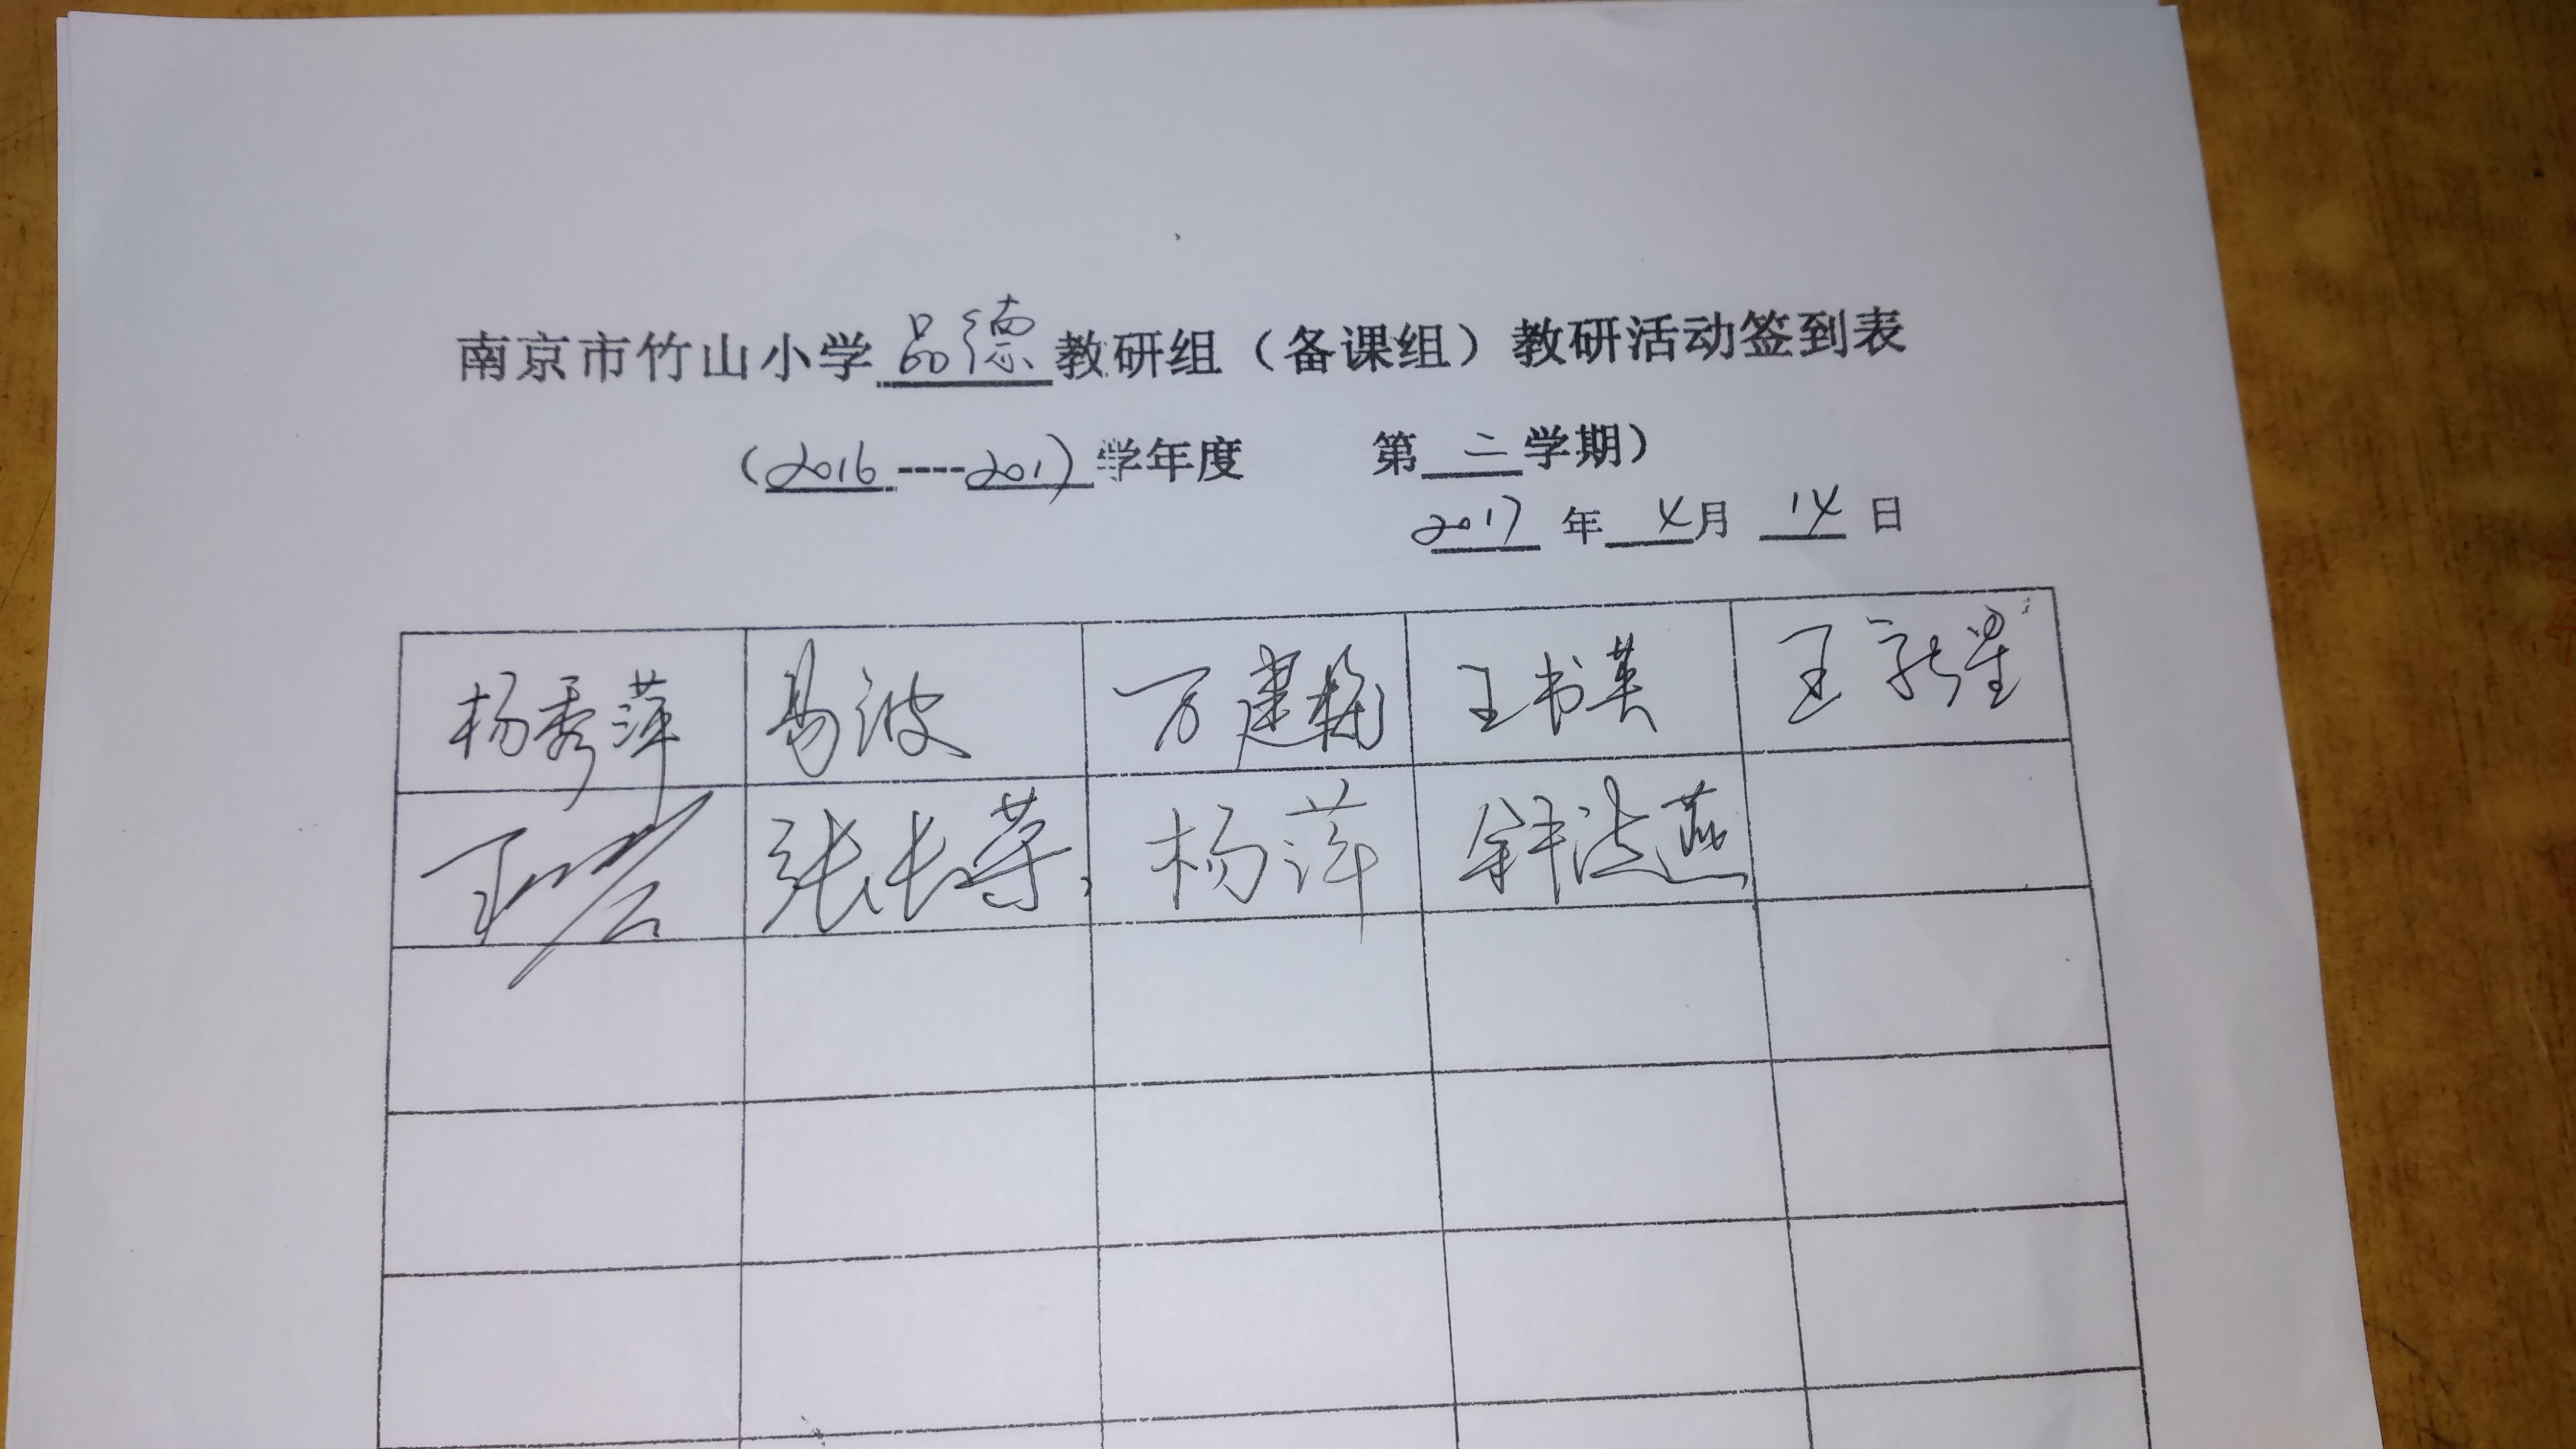 南京市竹山小学品德教研组（备课组）教研活动签到表
（2016----2017学年度 第二学期）
2017年4月14日
杨秀萍 易波 万建梅 王书英 王新星
张长芬 杨萍